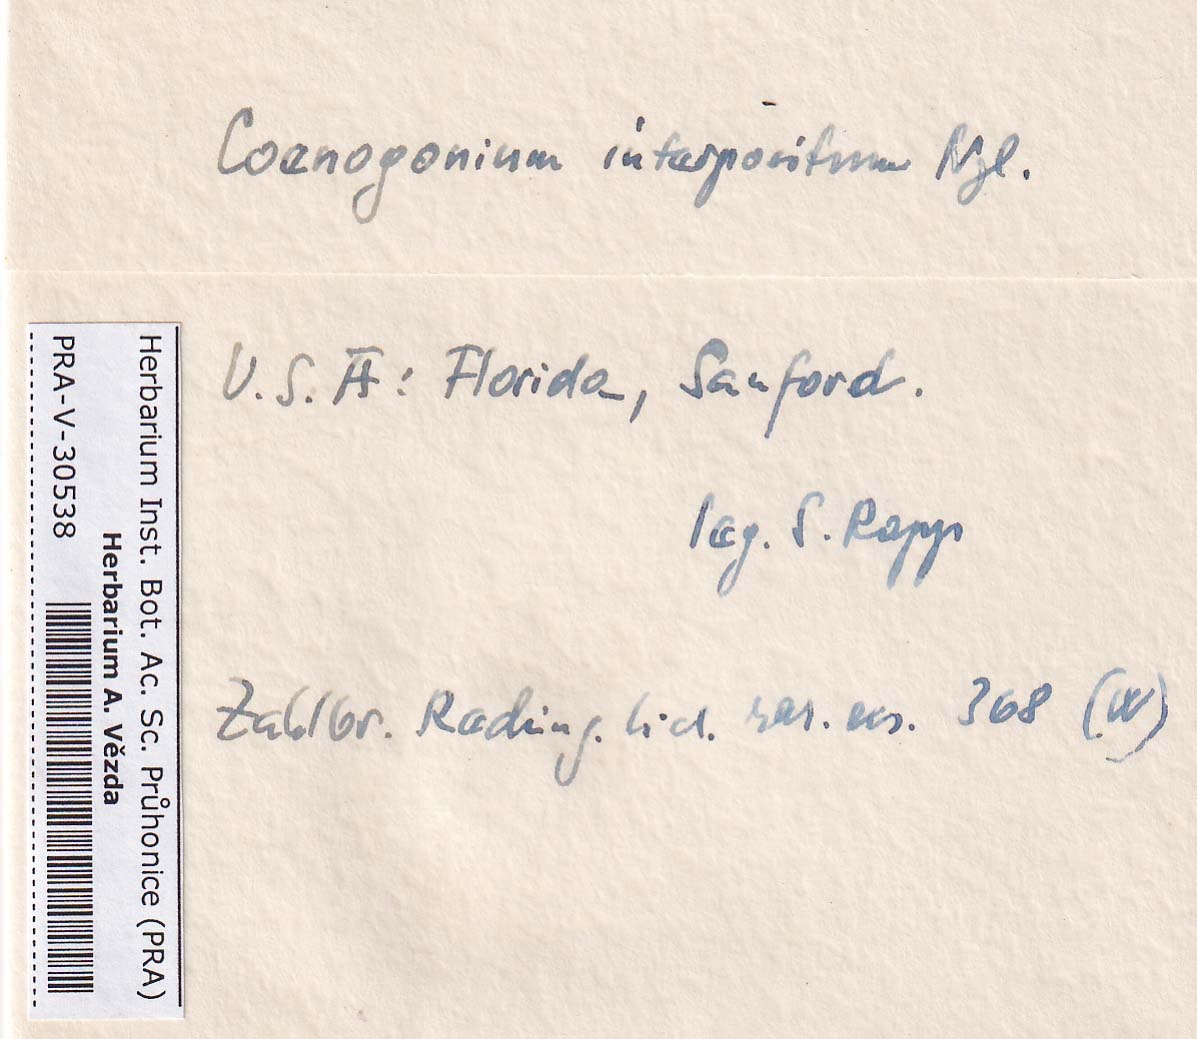 Coenogonium interpositum Nyl.
U.S.A: Florida, Sanford.
leg. S. Rapp
Zahlbr. Reding. Lich. rar. exs. 368 (W)
Herbarium Inst. Bot. Ac. Sc. Průhonice (PRA)
Herbarium A. Vězda
PRA-V-30538